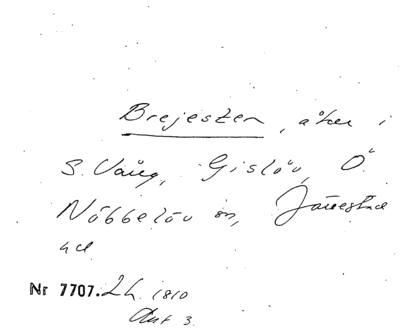 Brejesten, åker i
S. Vång, Gislöv, Ö.
Nöbbelöv sn, Järrestad
hd
Nr 7707. 2 h. 1810
Akt 3.